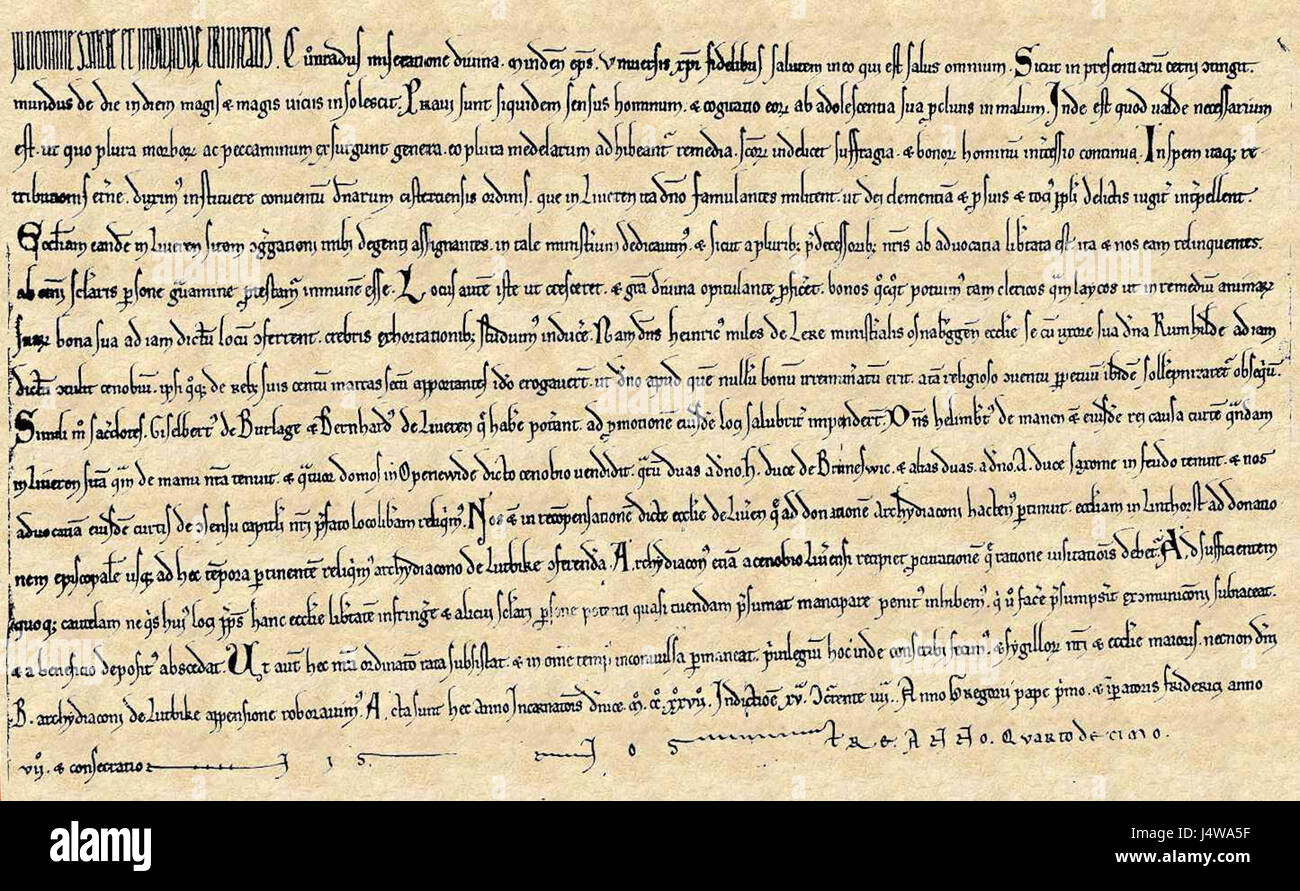 IN NOMINE SANCTE ET INDIVIDUE TRINITATIS. Cůnradus miseratione divina. minden̄ ep̄s. Universis xp̄i fidelibus salutem in eo qui est salus omnium. Sicut in presentiarū cerni ↄtingit.
mundus de die indiem magis & magis viciis insolescit. Pravi sunt siquidem sensus hominum. & cogitatio eoꝝ ab adolescentia sua ꝓclivis in malum. Inde est quod valde necessarium
est. ut quo plura morboꝝ ac peccaminum exsurgunt genera. eo plura medelarum adhibeant᷑ remedia. sc̄oꝝ videlicet suffragia. & bonoꝝ hominū int̄cessio continua. In spem itaq; re
tributionis et̄ne. duximꝰ instituere conventū dn̄arum cisterciensis ordinis. que in Liveren ita dn̄o famulantes militent. ut dei clementiā & ꝓ suis & tociꝰ pp̄li delictis iugit̄ int̄pellent.
Ecc̄liam eandē in Liveren sitam ↄg̑gationi inibi degenti assignantes. in tale minist̄ium dedicavimꝰ. & sicut a plurib; p̄decessorib; nr̄is ab advocatia lib̄ata est. ita & nos eam relinquentes.
ab omī sclāris ꝑsone g̑vamine p̄stam᷑ inmunē esse. Locus autē iste ut cresceret. & gr̄a divina opitulante ꝓficeret. bonos q̊scq̊t potuimꝰ tam clericos q̑m laycos ut in remediū animaꝝ
suaꝝ bona sua ad iam dictū locū ↄferrent. crebris exhortationib; studuimꝰ induc̄e. Nam dn̄s heinricꝰ miles de Leze ministialis osnab̑ggen ecclie se cū uxore sua dn̄a Rumhilde ad iam
dictū ↄtulit cenobiū. ipsi q̊q; de reb; suis centū marcas secū apportantes id̄o erogaver̄t. ut dn̄o apud quē nullū bonū irremun̄atū erit. a tā religioso ↄventu ꝑpetuū ibidē sollēpnizaret᷑ obseq̄ū.
Simili m̊ sac̄dotes. Giselbertꝰ de Burlage & Bernhardꝰ de Liveren q̊ hab̄e pot̄ant. ad ꝓmotionē eiusdē loci salubrit̄ impendert. Dn̄s helimb̄tꝰ de manen & eiusdē rei causa curtē q̑ndam
in Liveren sitā q̑m de manu nr̄a tenuit. & q̑tuor domos in Openewide dicto cenobio vendidit. q̑rū duas a dn̄o. h. duce de Brūneswic. & alias duas. a dn̄o. A. duce saxonie in feudo tenuit. & nos
advocatiā eiusdē curtis de ↄsensu capit̄li nr̄i p̄fato loco lib̄am reliq̊mꝰ. Nos & in recōpensationē dicte ecclie de Liv̄en q̄ ad donationē archydiaconi hactenꝰ ꝑtinuit. eccliam in Linthorst ad donatio
nem episcopalē usq; ad hec tēpora ꝑtinentē reliq̊mꝰ archydiacono de Lutbike ↄferendā. Archydiaconꝰ etiā a cenobio Liv̄ensi recipiet ꝓcurationē q̄ ratione visitationis debet᷑. Ad sufficientem
quoq; cautelam ne q̊s huiꝰ loci p̄p̄s hanc ecclie lib̄tatē infrinḡe & alicui sclāri ꝑsone potenti quasi tuendam p̄sumat mancipare penitꝰ inhibemꝰ. q̊ v̊ fac̄e p̄sumpsit̄ excōmunicōni subiaceat.
& a beneficio depositꝰ abscedat. Ut aut̄ hec nr̄a ordinatō rata subsistat. & in om̄e tempꝰ inconvulsa ꝑmaneat. p̊vilegium hoc inde conscribi fecimꝰ. & sygilloꝝ nr̄i & ecclie maioris. necnon dn̄i
B. archydiaconi de Lutbike appensione roboravimꝰ. Acta sunt hec anno Incarnatōnis dn̄ice. M̊. cc̊. xxvii̊. Indictiōe xv̊. ↄcurrente iiii. Anno Gregorii pape p̊mo. & īp̄atoris friderici anno
vii̊. & consecratio n i s. n o s t R E. A N N O. Quarto decimo.
alamy
Image ID: J4WA5F
www.alamy.com